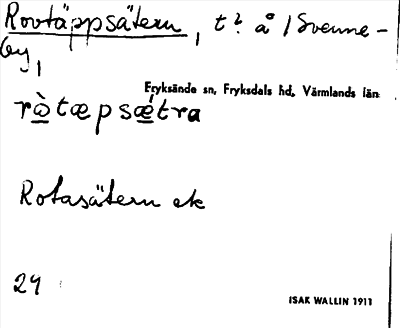 Rovtäppsätern, t? å /Svenne-
by,
Fryksände sn, Fryksdals hd, Värmlands län
ròtæpsǽtra
Rotasätern ek
24
ISAK WALLIN 1911